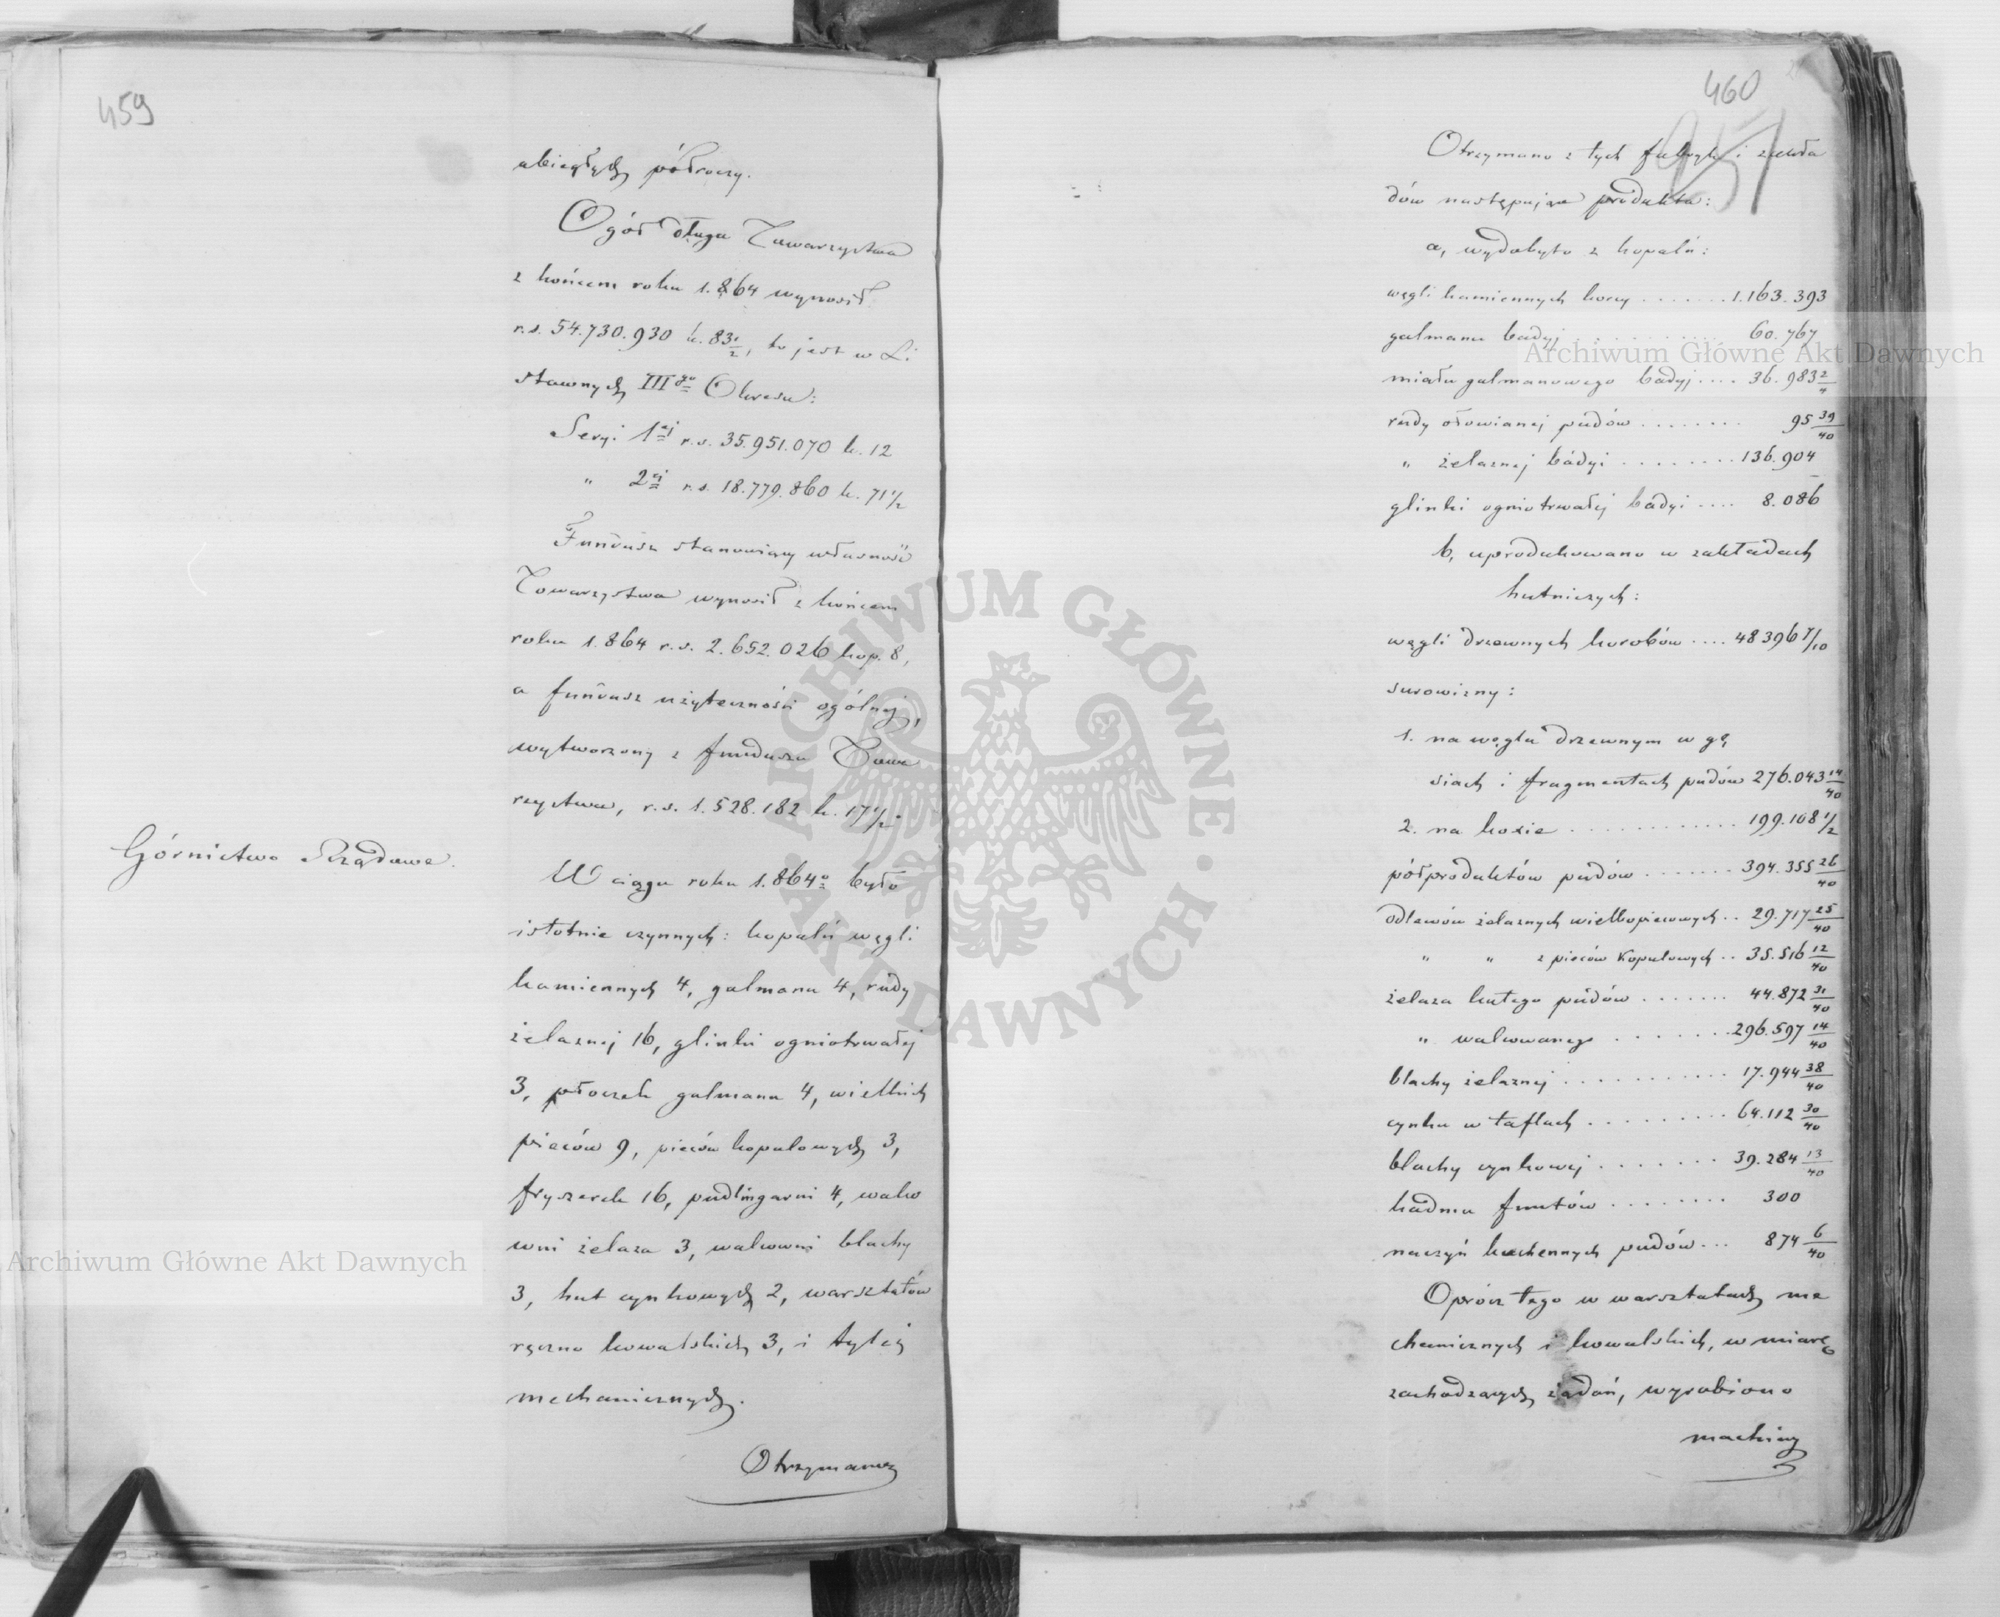 459
ubiegłych półroczy.
Ogół długu Towarzystwa
z końcem roku 1.864 wynosił
r.s. 54.730.930 k. 83 1/2, to jest w Li
stawnych III go Okresu:
Seryi 1 ej r.s. 35.951.070 k. 12
" 2 ej r.s. 18.779.860 k. 71 1/2
Fundusz stanowiący własność
Towarzystwa wynosił z końcem
roku 1.864 r.s. 2.652.026 kop. 8,
a fundusz użyteczności ogólnej,
wytworzony z funduszu Towa
rzystwa, r.s. 1.528.182 k. 17 1/2.
Górnictwo Rządowe.
W ciągu roku 1.864 o było
istotnie czynnych: kopalń węgli
kamiennych 4, galmanu 4, rudy
żelaznej 16, glinki ogniotrwałej
3, płoczek galmanu 4, wielkich
pieców 9, pieców kopulowych 3,
fryszerek 16, pudlingarni 4, walco
wni żelaza 3, walcowni blachy
3, hut cynkowych 2, warsztatów
ręczno kowalskich 3, i tyleż
mechanicznych.
Otrzymano
460
Otrzymano z tych fabryk i zakła
dów następujące produkta:
a, wydobyto z kopalń:
węgli kamiennych korcy ....... 1.163.393
galmanu badyj .......... 60.767
miału galmanowego badyj .... 36.983 2/4
rudy ołowianej pudów ........ 95 39/40
" żelaznej badyi ........ 136.904
glinki ogniotrwałej badyi .... 8.086
b, uprodukowano w zakładach
hutniczych:
węgli drzewnych korobów .... 48396 7/10
surowizny:
1. na węglu drzewnym w gę,
siach i fragmentach pudów 276.043 14/40
2. na koxie ............ 199.108 1/2
półproduktów pudów ....... 394.355 26/40
odlewów żelaznych wielkopiecowych .. 29.717 25/40
" " z pieców Kopulowych .. 35.516 12/40
żelaza kutego pudów ....... 44.872 31/40
" walcowanego ....... 296.597 14/40
blachy żelaznej ........... 17.944 38/40
cynku w taflach ......... 64.112 30/40
blachy cynkowej ....... 39.284 13/40
kadmu funtów ........ 300
naczyń kuchennych pudów ... 874 6/40
Oprócz tego w warsztatach me
chanicznych i kowalskich, w miarę
zachodzących żądań, wyrobiono
machiny
Archiwum Główne Akt Dawnych
Archiwum Główne Akt Dawnych
ARCHIWUM GŁÓWNE · AKT DAWNYCH ·